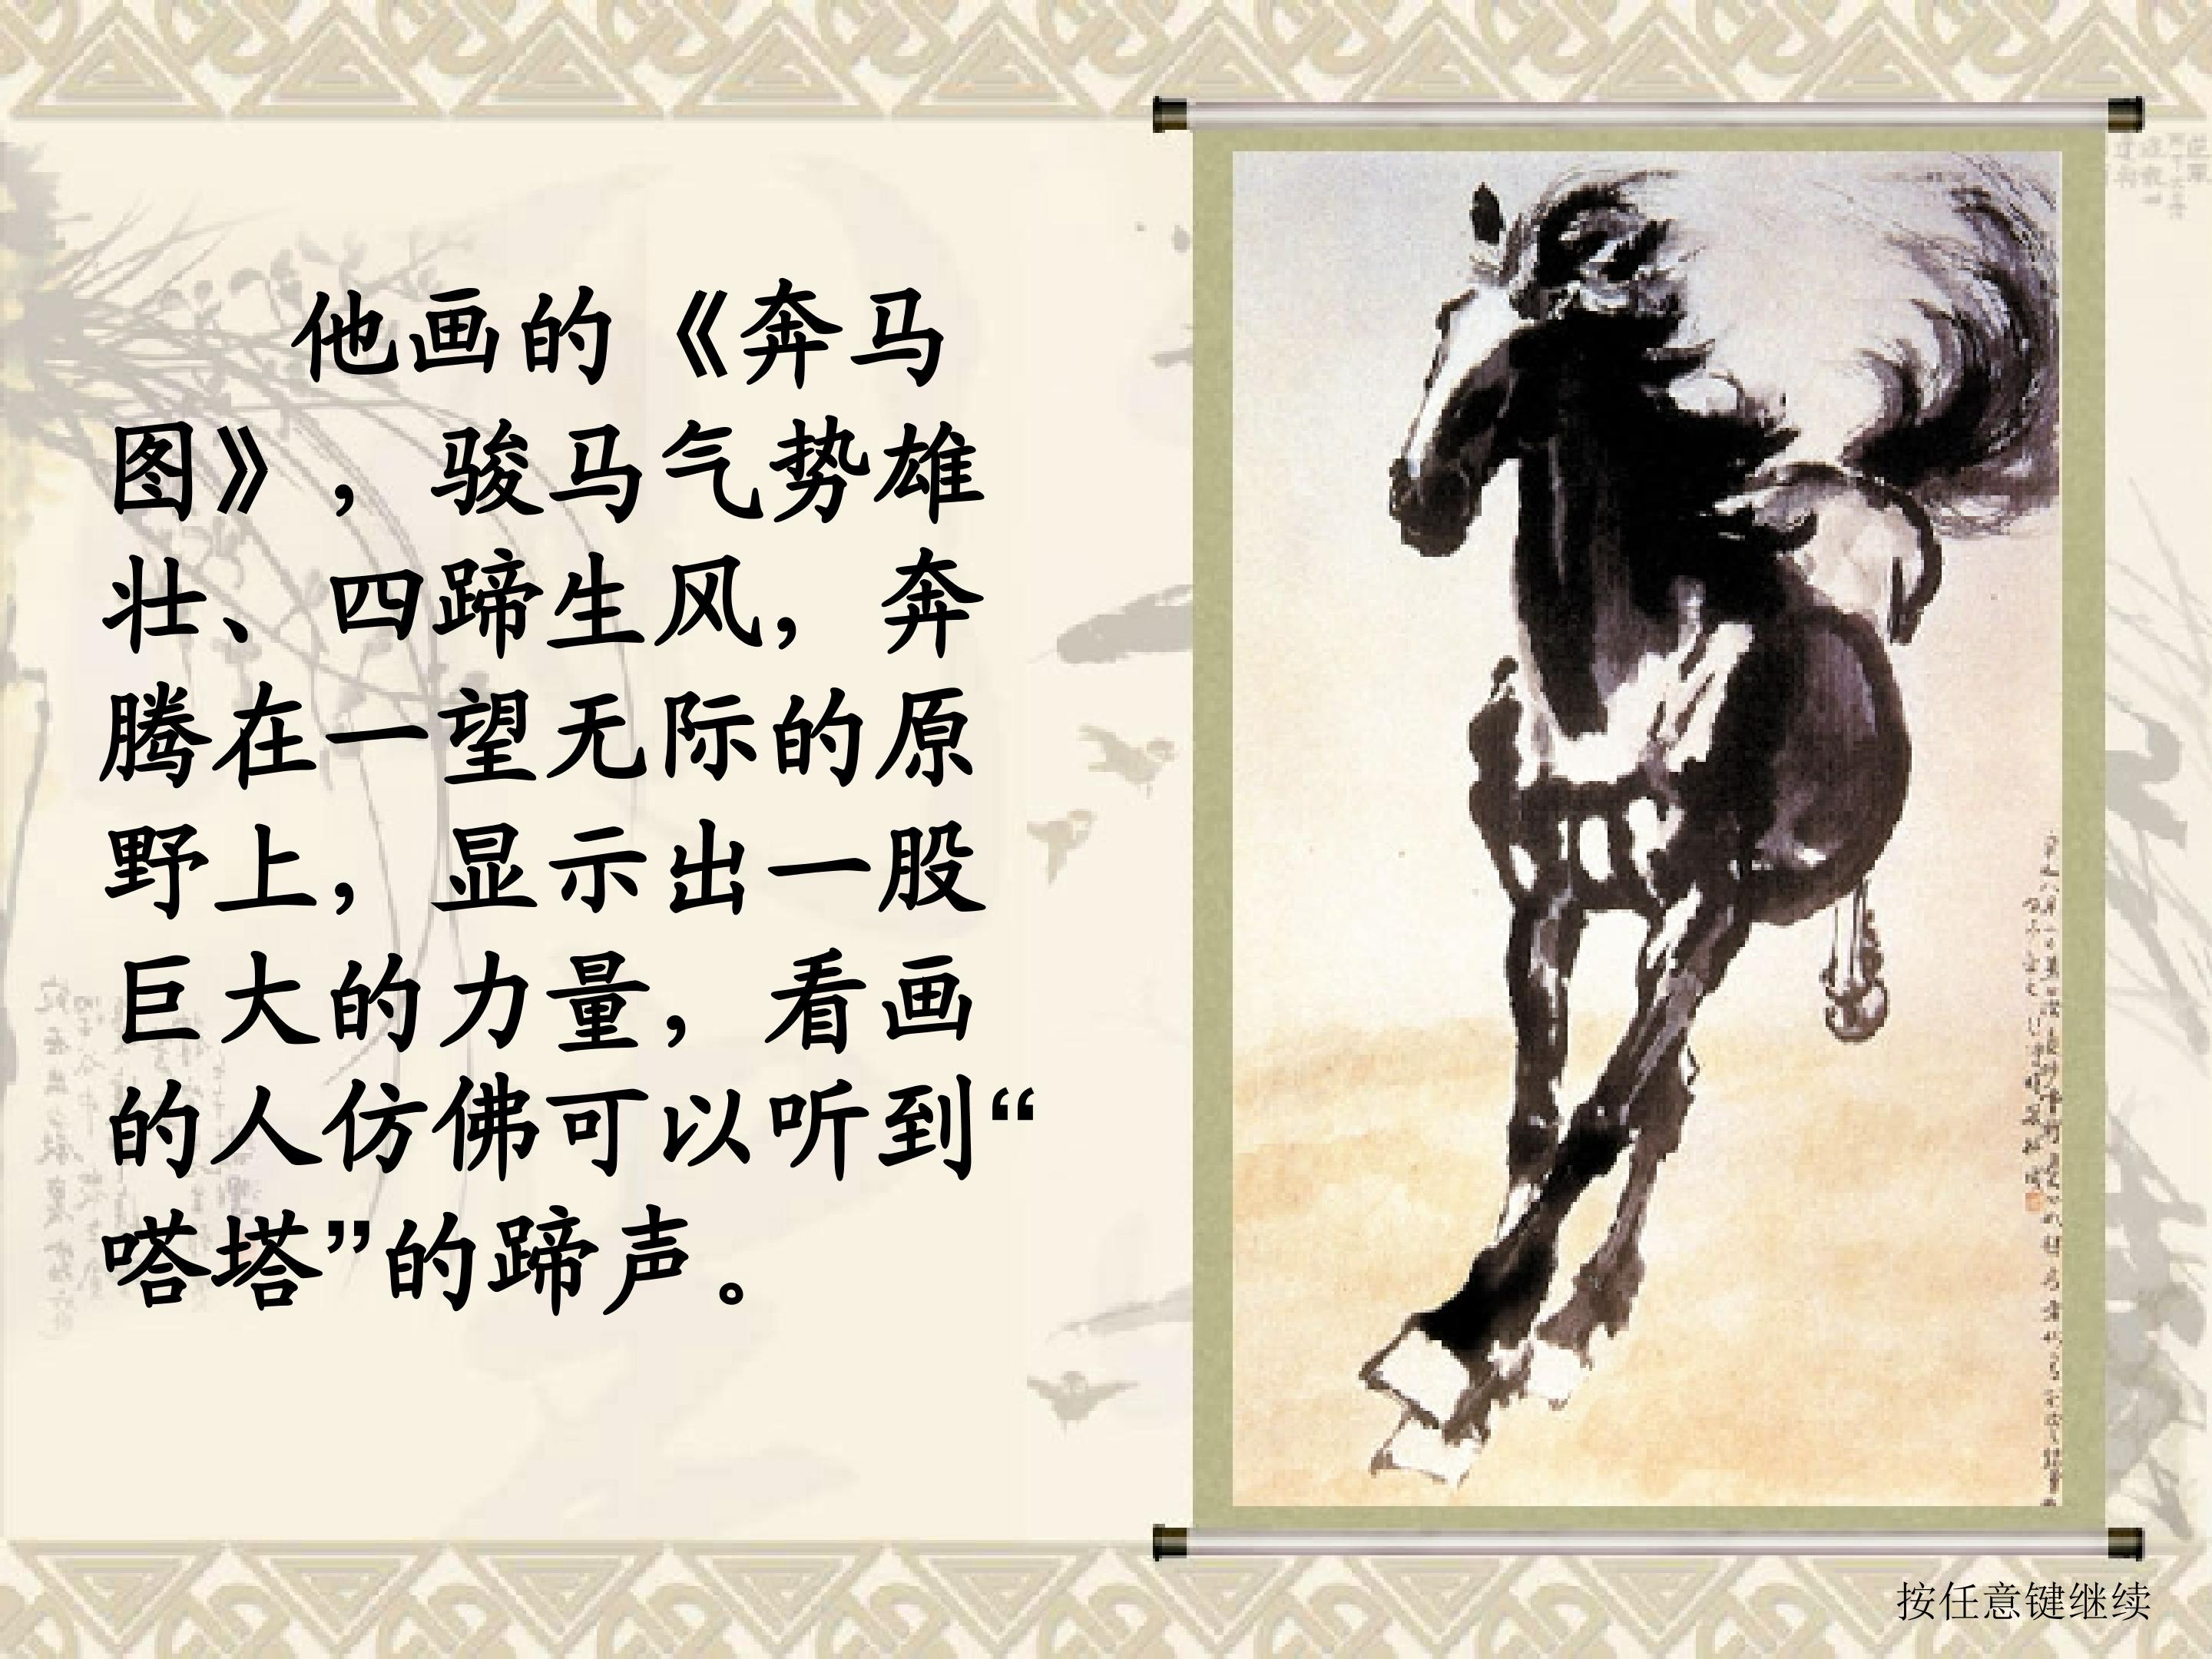 他画的《奔马
图》，骏马气势雄
壮、四蹄生风，奔
腾在一望无际的原
野上，显示出一股
巨大的力量，看画
的人仿佛可以听到“
嗒塔”的蹄声。
按任意键继续